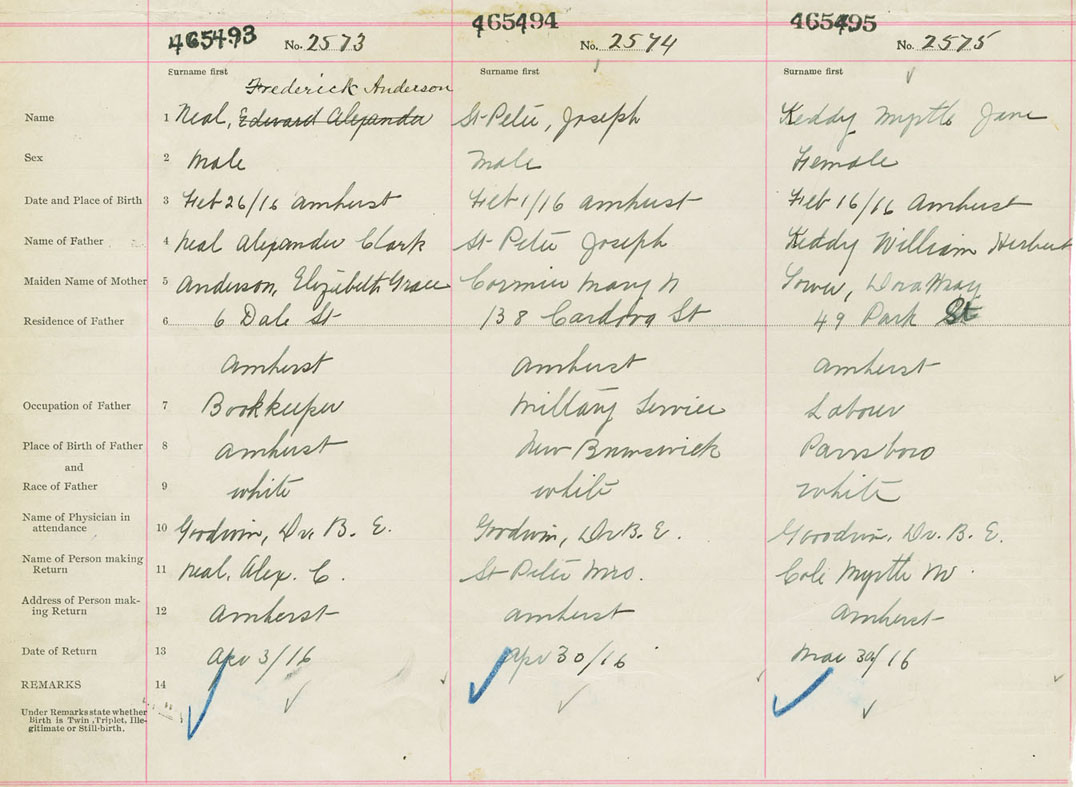 465493 465494 465495
No. 2573 No. 2574 No. 2575
Surname first Surname first Surname first
Frederick Anderson
Name 1 Neal, Edward Alexander St Peter, Joseph Keddy Myrtle Jane
Sex 2 Male Male Female
Date and Place of Birth 3 Feb 26/16 Amherst Feb 1/16 Amherst Feb 16/16 Amherst
Name of Father 4 Neal Alexander Clark St Peter Joseph Keddy William Herbert
Maiden Name of Mother 5 Anderson, Elizabeth Grace Cormier Mary N Dora May
Residence of Father 6 6 Dale St 138 Cardova St 49 Park St
Amherst Amherst Amherst
Occupation of Father 7 Bookkeeper Military Service Labour
Place of Birth of Father 8 Amherst New Brunswick Parrsboro
and
Race of Father 9 white white white
Name of Physician in
attendance 10 Goodwin, Dr. B. E. Goodwin, Dr B. E. Goodwin, Dr. B. E.
Name of Person making
Return 11 Neal, Alex. C. St Peter Mrs. Cole Myrtle
Address of Person mak-
ing Return 12 Amherst Amherst Amherst
Date of Return 13 Apr 3/16 Apr 30/16 Mar 30/16
REMARKS 14
Under Remarks state whether
Birth is Twin, Triplet, Ille-
gitimate or Still-birth.